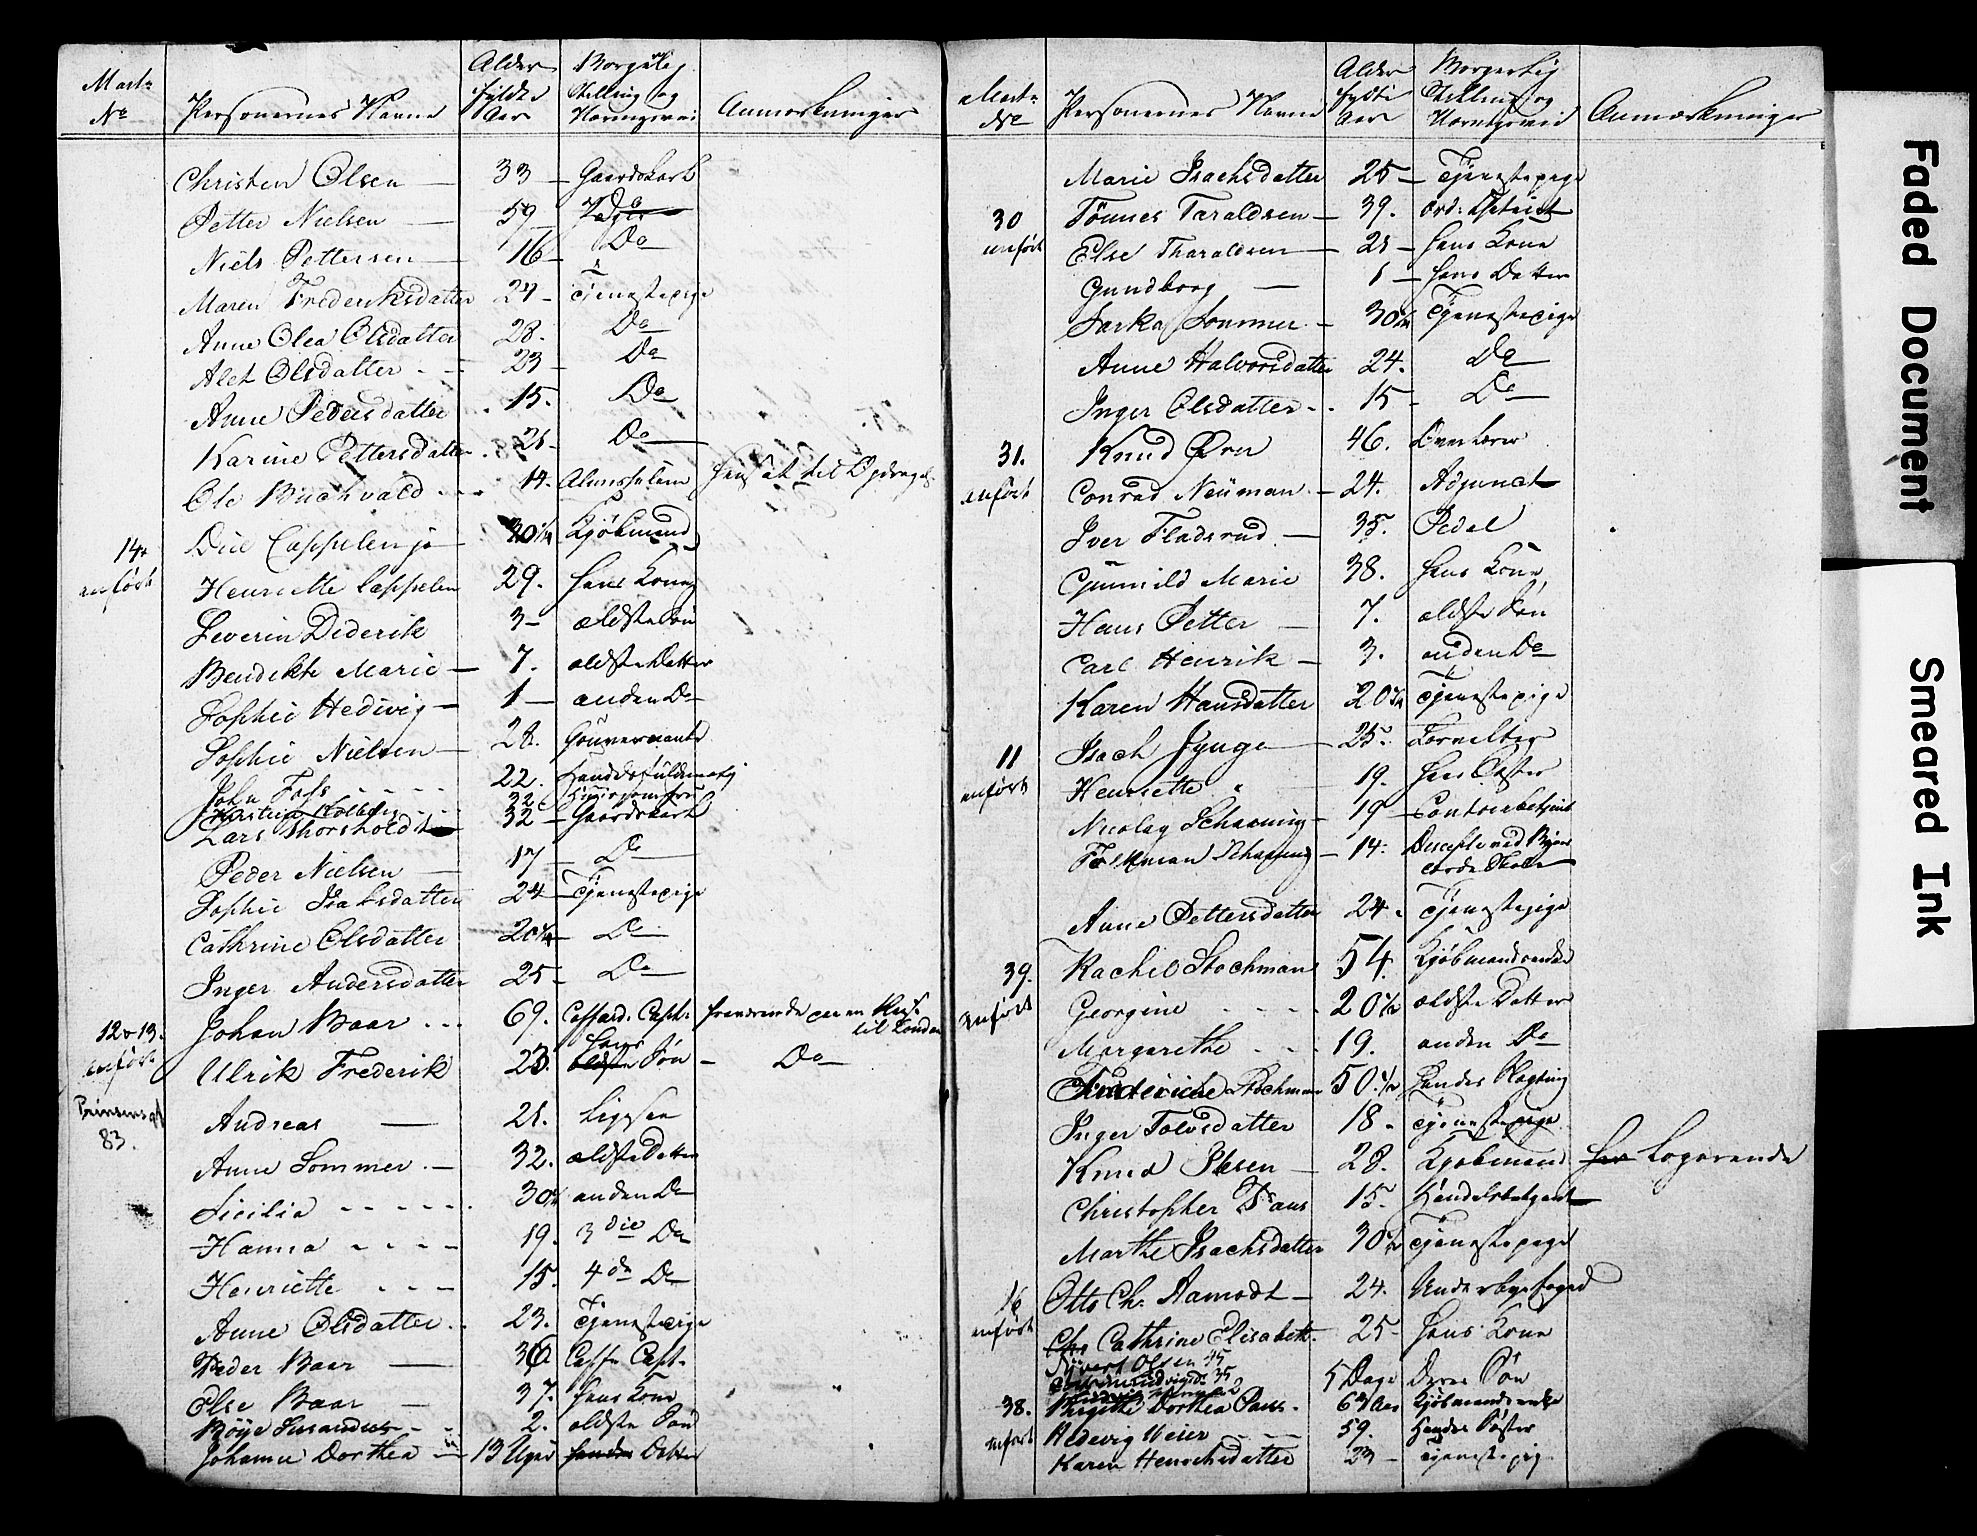 Matr: No | Personernes Navne | Alder fyldte Aar | Borgerlig Stilling og Næringsvei | Anmærkninger
Christen Olsen — 33 — Gaardskarl
Petter Nielsen — 59 — Do
Niels Pettersen — 16 — Do
Maren Frederiksdatter 24 — Tjenestepige
Anne Olea Olsdatter 28. Do
Alet Olsdatter 23 — Do
Anne Pedersdatter 15. Do
Karine Pettersdatter 21 — Do
Ole Buchvald 14.
14 Did Cappelen jr 30 1/2 Kjøbmand
anført Henriette Cappelen 29. hans Kone
Severin Diderik 3 — ældste Søn
Bendikte Marie — 7. ældste Datter
Sophie Hedivig — 1 — anden Do
Sophie Nielsen — 28. Gouvernante
John Foss 22. Handelsfuldmægtig
32
Lars Thorsholdt 32 — Gaardskarl
Peder Nielsen — 17 — Do
Sophie Isaksdatter 24 — Tjenestepige
Cathrine Olsdatter 20 1/2 — Do
Inger Andersdatter 25 — Do
12 & 13. Johan Baar 69.
til London
anført Ulrik Frederik 23. hans ældste Søn — Do
Prinsensgt 83.
Andreas — 21.
Anne Sommer. — 32. ældste Datter
Sicilia 30 1/2 anden Do
Hanna 19. 3die Do
Henriette 15. 4de Do
Anne Olsdatter 23. Tjenestepige
Peder Baar — 36
Else Baar — 37. hans Kone
Böÿe 2. ældste Søn
Johanne Dorthea — 13 Uger Datter
Matr: No | Personernes Navne | Alder fyldte Aar | Borgerlig Stilling og Næringsveid | Anmærkninger
Marie Isachsdatter 25 — Tjenestepige
30 Tönnes Taraldsen — 39.
anført Else Tharaldsen — 21 — hans Kone
Gundborg — 1 — hans Datter
Sommer — 30 1/2 Tjenestepige
Anne Halvorsdatter 24. Do
Inger Olsdatter 15 — Do
31. Knud Ører 46. Overlærer
anført Conrad Neüman — 24. Adjunct
Iver Fladsrud — 35. Pedel
Gunnild Marie 38. hans Kone
Hans Petter — 7. ældste Søn
Carl Henrik — 3. anden Do
Karen Hansdatter 20 1/2 Tjenestepige
11 Isach Jynge — 25. Forvalter
anført Henriette " 19. hans Søster
Nicolay Schanning — 19 — Contoirbetjent
Schanning — 14.
Anne Pettersdatter 24. Tjenestepige
39. Rachel Stochman 54. Kjøbmandsenke
anført Georgine 20 1/2 ældste Datter
Margarethe 19. anden Do
Frederiche Stochman 50 1/2 hendes Slegtning
Inger Tolvsdatter 18 — Tjenestepige
Knud Ibsen — 28. Kjøbmand Logerende
Christopher Paus 15. Handelsbetjent
Marthe Isachsdatter 30 1/2 Tjenestepige
16 Otto Ch. Aamodt — 24. Underbyefoged
anført Cathrine Elisabeth 25 — hans Kone
Sivert Olsen 45
35
5 Dage Deres Søn
38. Birgithe Dorthea Paus. Kjøbmandsenke
anført Hedevig Meier 59. hendes Søster
Karen Henrichsdatter 23 — Tjenestepige
Faded Document
Smeared Ink